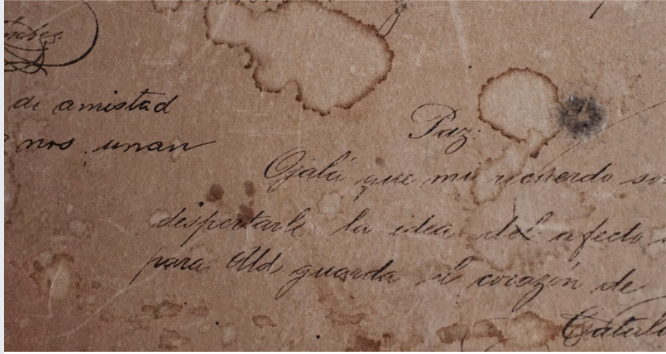 de amistad
nos unan
Paz:
Ojalá que mi recuerdo
despertarle la idea del afecto
para Ud guarda el corazón de